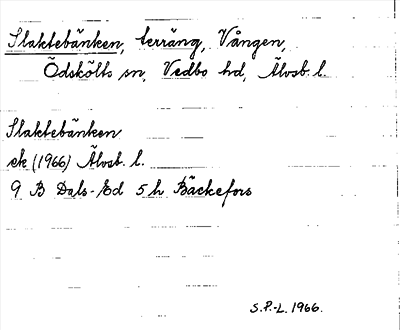 Slaktebänken, terräng, Vången,
Ödskölts sn, Vedbo hd, Älvsb. l.
Slaktebänken
ek (1966) Älvsb. l.
9 B Dals-Ed 5 h Bäckefors
S.P.-L. 1966.